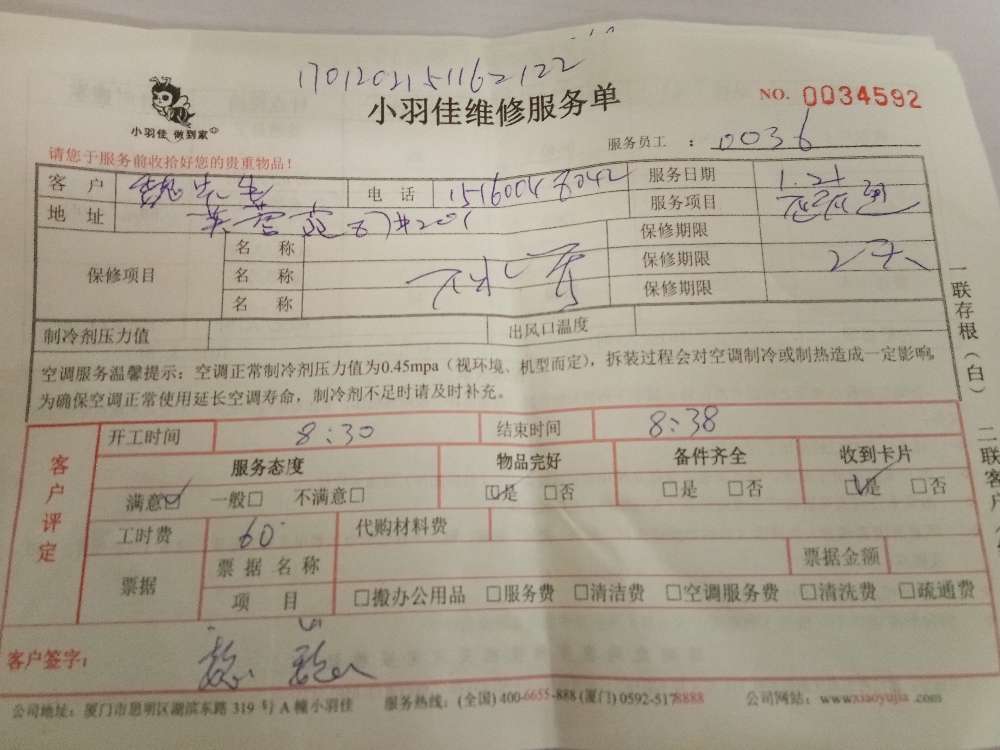 1701202151162122
小羽佳 做到家
小羽佳维修服务单
NO. 0034592
服务员工 : 0036
请您于服务前收拾好您的贵重物品！
客户 魏先生 电话 服务日期 1.21
地址 芙蓉苑 服务项目
保修项目 名称 保修期限
名称 保修期限 2天
名称 保修期限
制冷剂压力值 出风口温度
空调服务温馨提示：空调正常制冷剂压力值为0.45mpa（视环境、机型而定），拆装过程会对空调制冷或制热造成一定影响，
为确保空调正常使用延长空调寿命，制冷剂不足时请及时补充。
一联存根（白）
二联客户
客户评定
开工时间 8:30 结束时间 8:38
服务态度 物品完好 备件齐全 收到卡片
满意☑ 一般□ 不满意□ ☑是 □否 □是 □否 ☑是 □否
工时费 60 代购材料费
票据 票据名称 票据金额
项目 □搬办公用品 □服务费 □清洁费 □空调服务费 □清洗费 □疏通费
客户签字：
公司地址：厦门市思明区湖滨东路 319 号 A 幢小羽佳 服务热线：(全国) 400-6655-888 (厦门) 0592-5178888 公司网站：www.xiaoyujia.com